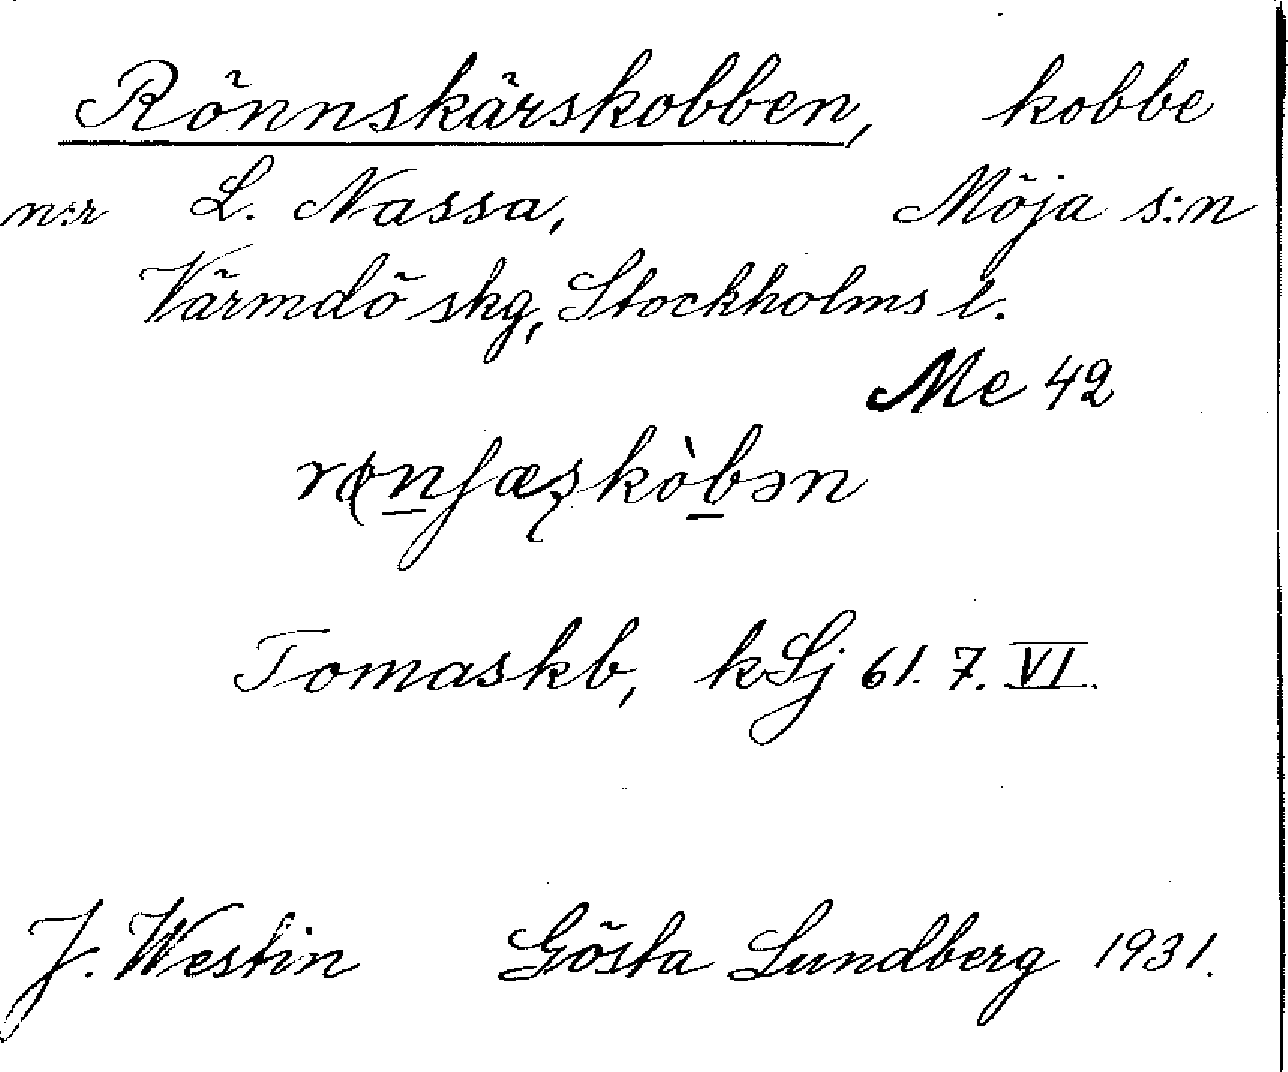 Rönnskärskobben, kobbe
n:r L. Nassa, Möja s:n
Värmdö skg, Stockholms l.
Me 42
Tomaskb, kLj 61. 7. VI.
J. Westin Gösta Lundberg 1931.